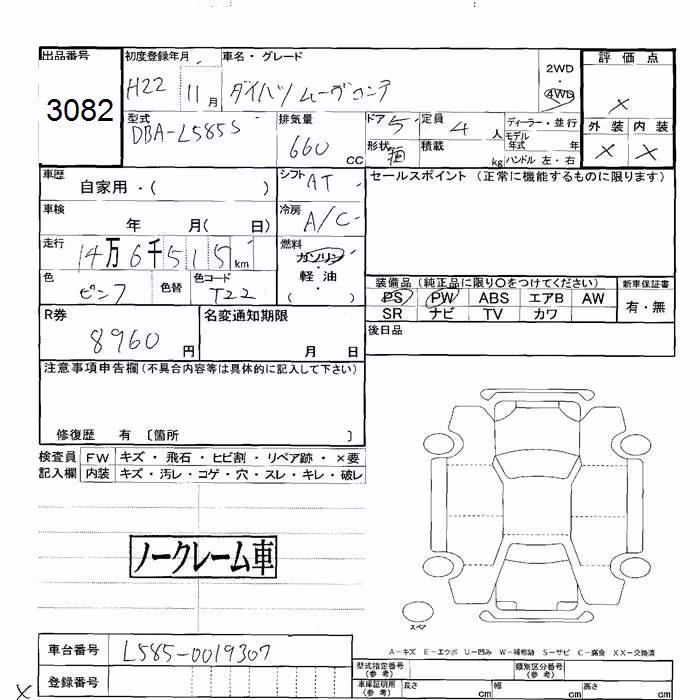 出品番号
3082
初度登録年月
H22 11月
車名・グレード
ダイハツ ムーヴコンテ
2WD
・
4WD
評価点
×
外装 内装
× ×
型式
DBA-L585S
排気量
660 cc
ドア 5
定員 4 人
形状 箱
積載 kg
ディーラー・並行
モデル年式 年
ハンドル 左・右
車歴
自家用・( )
シフト AT
セールスポイント (正常に機能するものに限ります)
車検
年 月( 日)
冷房 A/C
走行
14万6千515km
燃料
ガソリン
・
軽油
( )
色 ピンク
色替
色コード T22
装備品(純正品に限り○をつけてください)
新車保証書
PS PW ABS エアB AW
有・無
SR ナビ TV カワ
R券
8960 円
名変通知期限
月 日
後日品
注意事項申告欄(不具合内容等は具体的に記入して下さい)
修復歴 有 〔箇所 〕
検査員 FW キズ・飛石・ヒビ割・リペア跡・×要
記入欄 内装 キズ・汚レ・コゲ・穴・スレ・キレ・破レ
ノークレーム車
スペア
A-キズ E-エクボ U-凹み W-補修跡 S-サビ C-腐食 XX-交換済
車台番号 L585-0019307
登録番号
型式指定番号(参考)
類別区分番号(参考)
車庫証明用(参考) 長さ cm 幅 cm 高さ cm
×